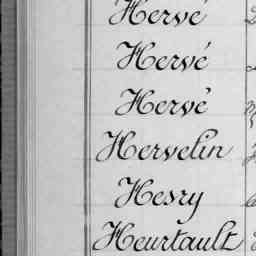 Hervé
Hervé
Hervé
Hervelin
Hesry
Heurtault